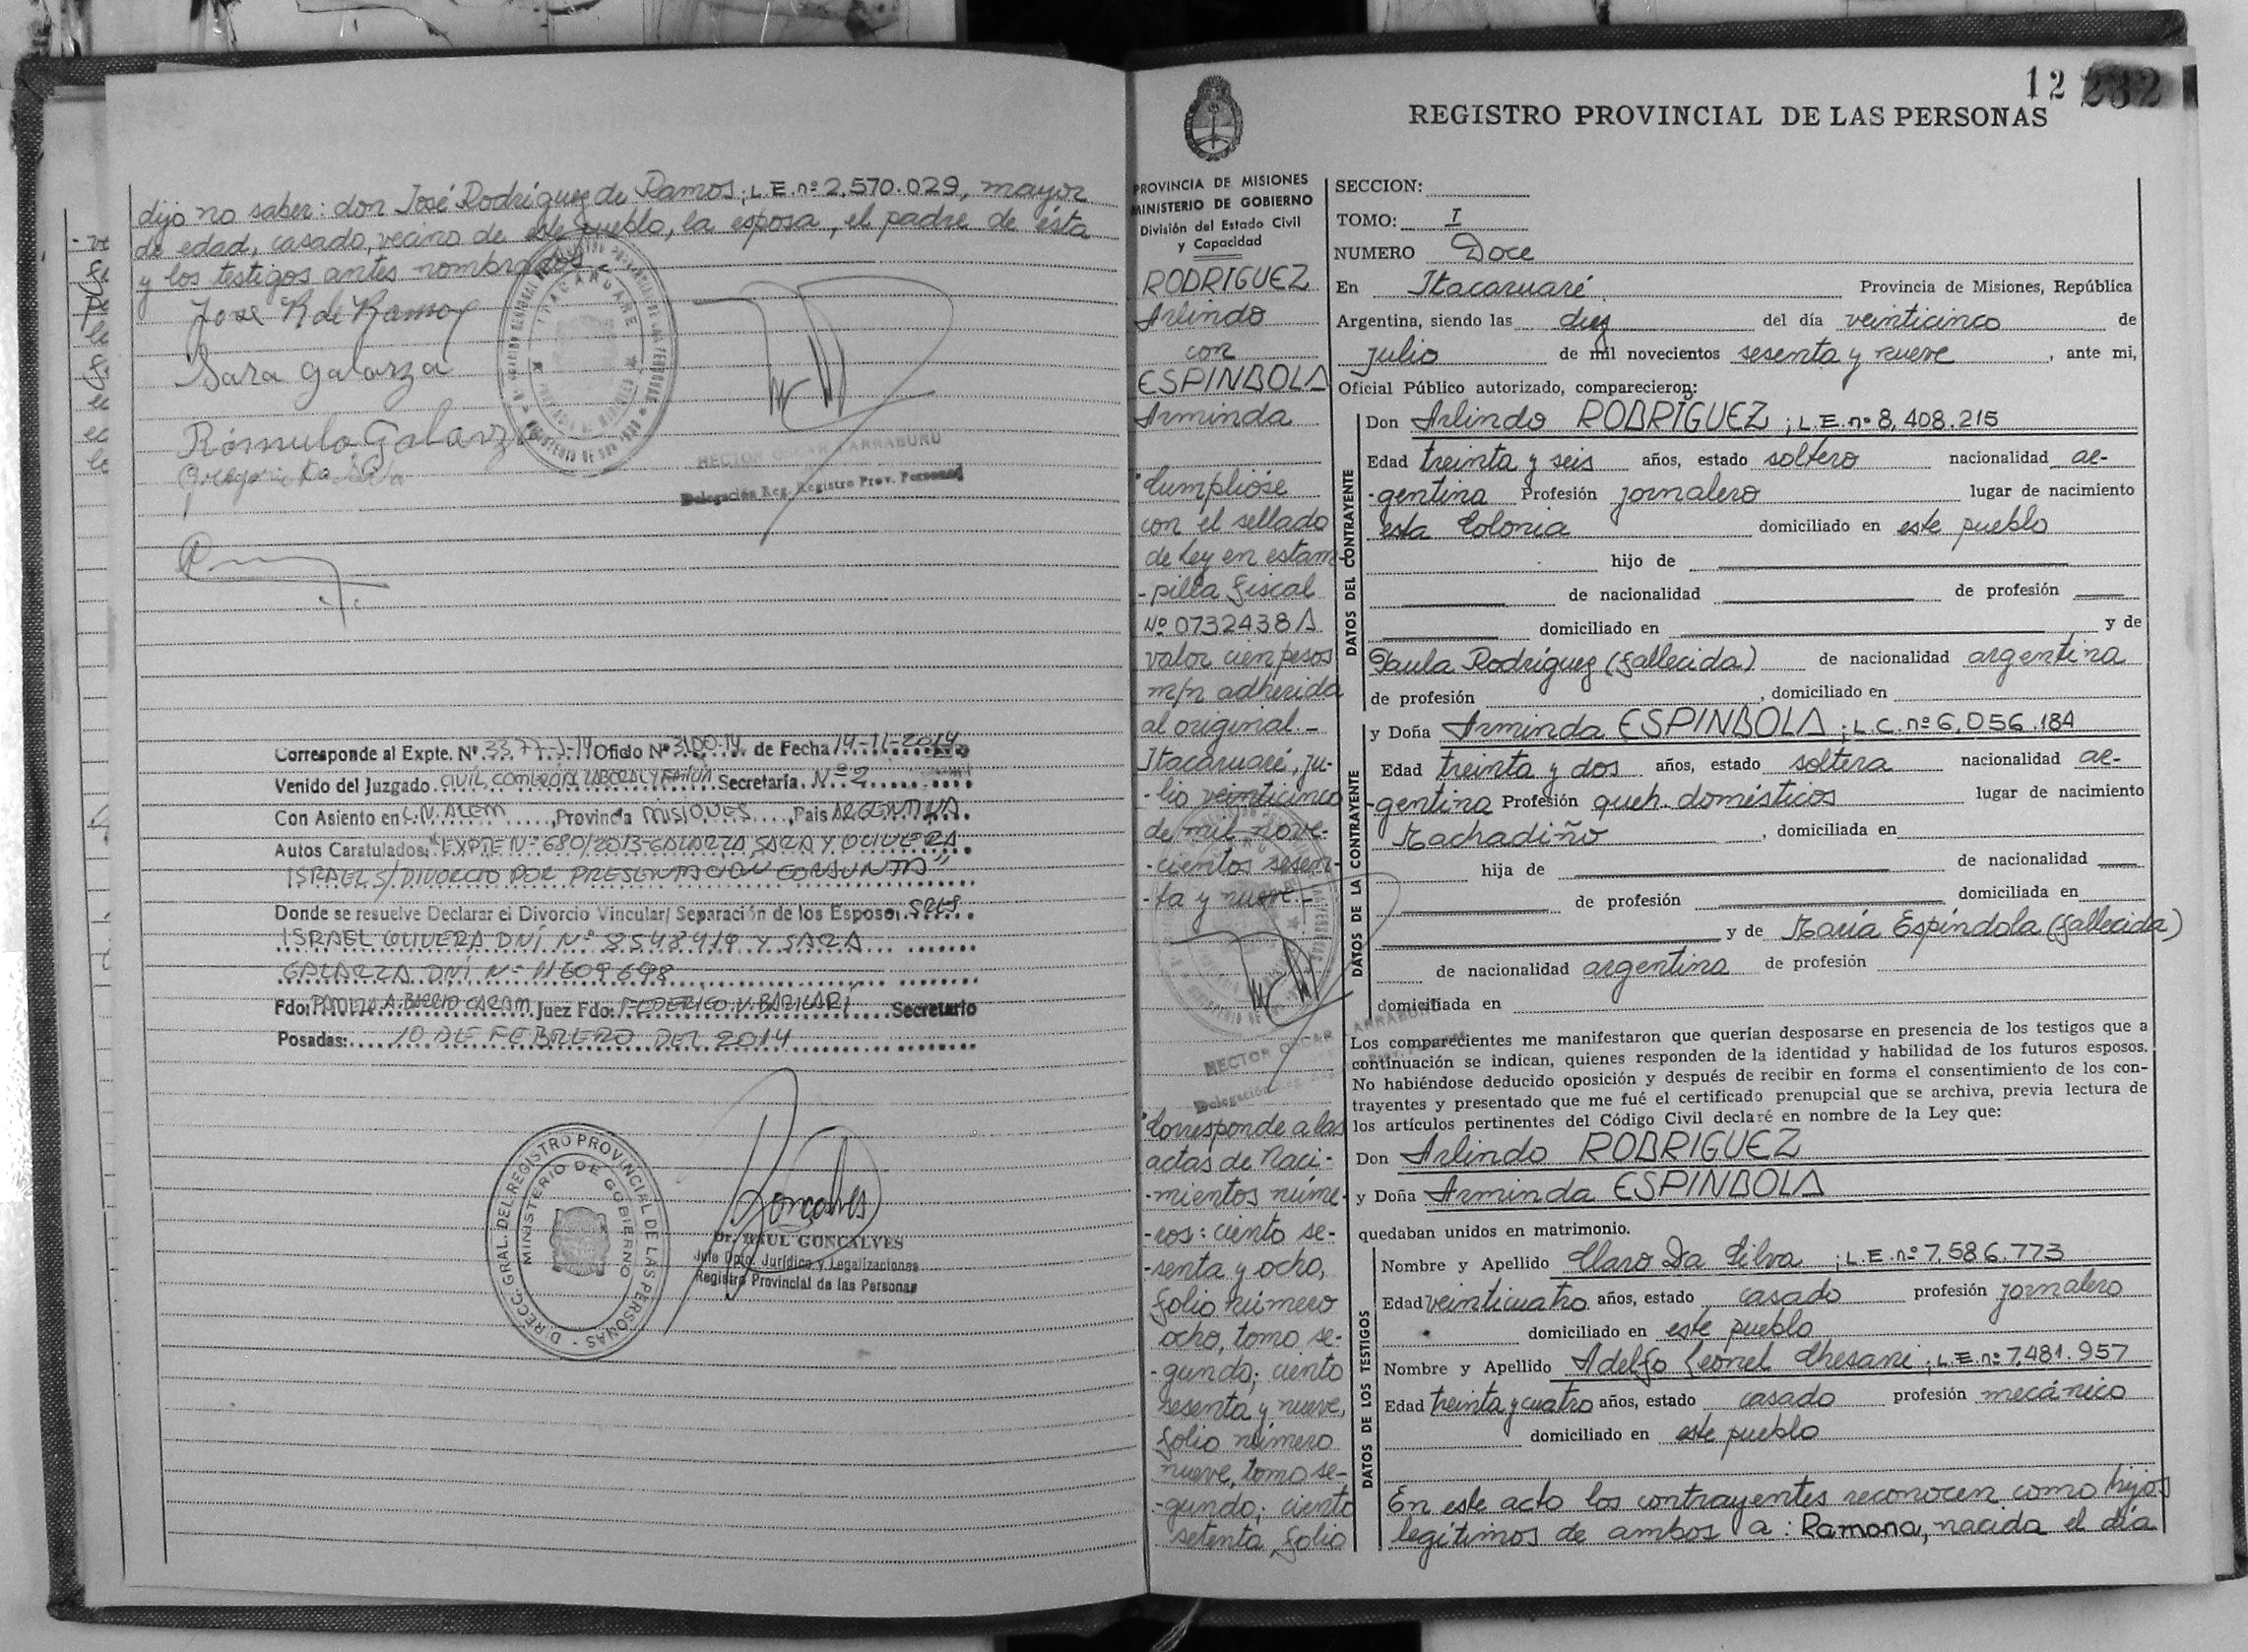 dijo no saber: don José Rodríguez de Ramos; L.E. nº 2.570.029, mayor
de edad, casado, vecino de este pueblo, la esposa, el padre de ésta
y los testigos antes nombrados.
José R de Ramos
Sara Galarza
Rómulo Galarza
Gregorio Da Silva
ITACARUARE
HECTOR OSCAR ARRABURU
Delegación Reg. Registro Prov. Personas
Corresponde al Expte. Nº 3377-J-14 Oficio Nº 3100-14 de Fecha 14-11-2014
Venido del Juzgado CIVIL COMERCIAL LABORAL Y FAMILIA Secretaría Nº 2
Con Asiento en L.N. ALEM, Provincia MISIONES, Pais ARGENTINA
Autos Caratulados: "EXPTE Nº 680/2013-GALARZA SARA Y OLIVERA
ISRAEL S/ DIVORCIO POR PRESENTACION CONJUNTA"
Donde se resuelve Declarar el Divorcio Vincular/ Separación de los Esposos SRES
ISRAEL OLIVERA DNI Nº 8548419 Y SARA
GALARZA DNI Nº 11609698
Fdo: A. BARRIO CARAM Juez Fdo: FEDERICO V. BARILARI Secretario
Posadas: 10 DE FEBRERO DEL 2014
DIRECC. GRAL. DEL REGISTRO PROVINCIAL DE LAS PERSONAS
MINISTERIO DE GOBIERNO
Goncalves
Dr. RAUL GONCALVES
Jefe Dpto. Jurídico y Legalizaciones
Registro Provincial de las Personas
12 232
REGISTRO PROVINCIAL DE LAS PERSONAS
PROVINCIA DE MISIONES
MINISTERIO DE GOBIERNO
División del Estado Civil
y Capacidad
RODRIGUEZ
Arlindo
con
ESPINDOLA
Arminda
"Cumplióse
con el sellado
de Ley en estam-
-pilla fiscal
Nº 0732438 A
valor cien pesos
m/n adherida
al original.-
Itacaruaré, ju-
-lio veinticinco
de mil nove-
-cientos sesen-
-ta y nueve.-
HECTOR OSCAR ARRABURU
Delegación Reg.
"Corresponde a las
actas de Naci-
-mientos núme-
-ros: ciento se-
-senta y ocho,
folio número
ocho, tomo se-
-gundo; ciento
sesenta y nueve,
folio número
nueve, tomo se-
-gundo; ciento
setenta, folio
SECCION:
TOMO: I
NUMERO Doce
En Itacaruaré, Provincia de Misiones, República
Argentina, siendo las diez del día veinticinco de
julio de mil novecientos sesenta y nueve, ante mi,
Oficial Público autorizado, comparecieron:
DATOS DEL CONTRAYENTE
Don Arlindo RODRIGUEZ; L.E. nº 8,408.215
Edad treinta y seis años, estado soltero nacionalidad ar-
-gentina Profesión jornalero lugar de nacimiento
esta Colonia domiciliado en este pueblo
hijo de
de nacionalidad de profesión
domiciliado en y de
Paula Rodríguez (fallecida) de nacionalidad argentina
de profesión , domiciliado en
DATOS DE LA CONTRAYENTE
y Doña Arminda ESPINDOLA; L.C. nº 6,056.184
Edad treinta y dos años, estado soltera nacionalidad ar-
-gentina Profesión queh. domésticos lugar de nacimiento
Machadiño, domiciliada en
hija de de nacionalidad
de profesión domiciliada en
y de María Espíndola (fallecida)
de nacionalidad argentina de profesión
domiciliada en
Los comparecientes me manifestaron que querían desposarse en presencia de los testigos que a
continuación se indican, quienes responden de la identidad y habilidad de los futuros esposos.
No habiéndose deducido oposición y después de recibir en forma el consentimiento de los con-
trayentes y presentado que me fué el certificado prenupcial que se archiva, previa lectura de
los artículos pertinentes del Código Civil declaré en nombre de la Ley que:
Don Arlindo RODRIGUEZ
y Doña Arminda ESPINDOLA
quedaban unidos en matrimonio.
DATOS DE LOS TESTIGOS
Nombre y Apellido Claro Da Silva; L.E. nº 7,586.773
Edad veinticuatro años, estado casado profesión jornalero
domiciliado en este pueblo
Nombre y Apellido Adelfo Leonel Chesani; L.E. nº 7.481.957
Edad treinta y cuatro años, estado casado profesión mecánico
domiciliado en este pueblo
En este acto los contrayentes reconocen como hijos
legítimos de ambos a: Ramona, nacida el día